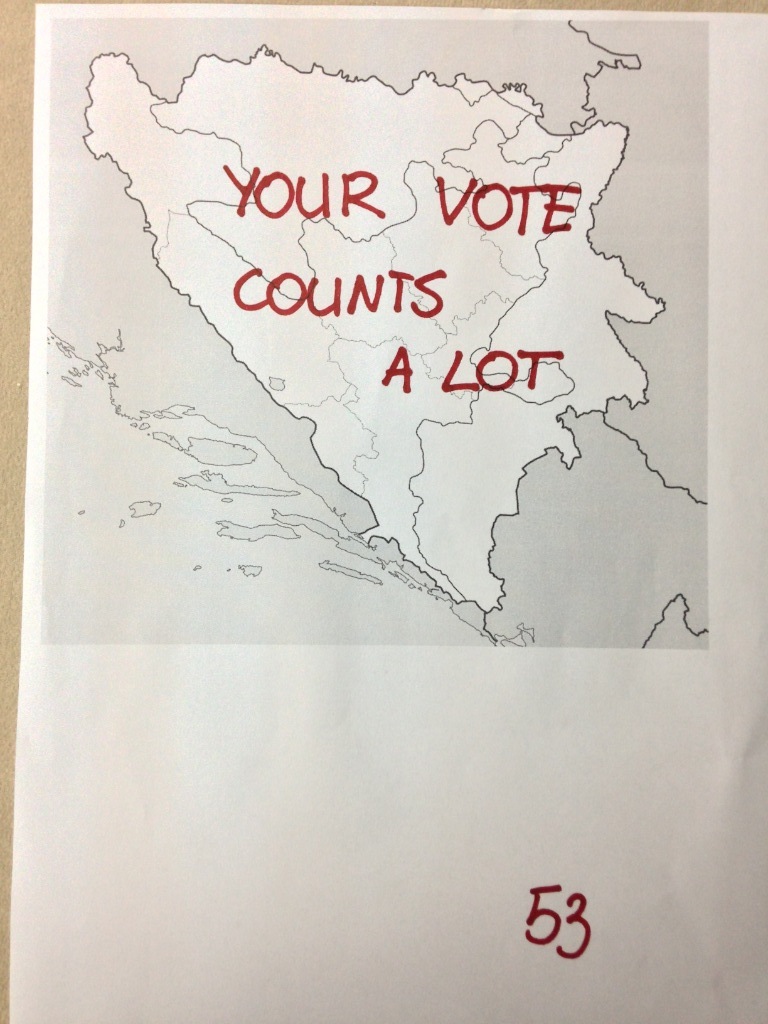 YOUR VOTE
COUNTS
A LOT
53